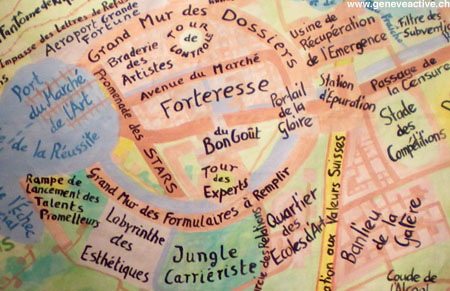 www.geneveactive.ch
Impasse des Lettres de
Aeroport Grande
Fortune
Grand Mur des Dossiers
TOUR
DE
CONTROLE
Braderie
des
Artistes
Usine de
Récupération
de l'Emergence
Filtre des
Avenue du Marché
Forteresse
du
Bon Goût
Promenade des STARS
Port
du Marché
de l'Art
de la Réussite
Portail
de la
Gloire
Station
d'Epuration
Passage de
la Censure
Stade
des
Compétitions
Tour
des
Experts
Grand Mur des Formulaires à Remplir
Rampe de
Lancement des
Talents
Prometteurs
Labyrinthe
des
Esthétiques
Jungle
Carriériste
Quartier
des
Ecoles d'Art
aux Valeurs Suisses
Banlieu
de la
Galère
Coude de